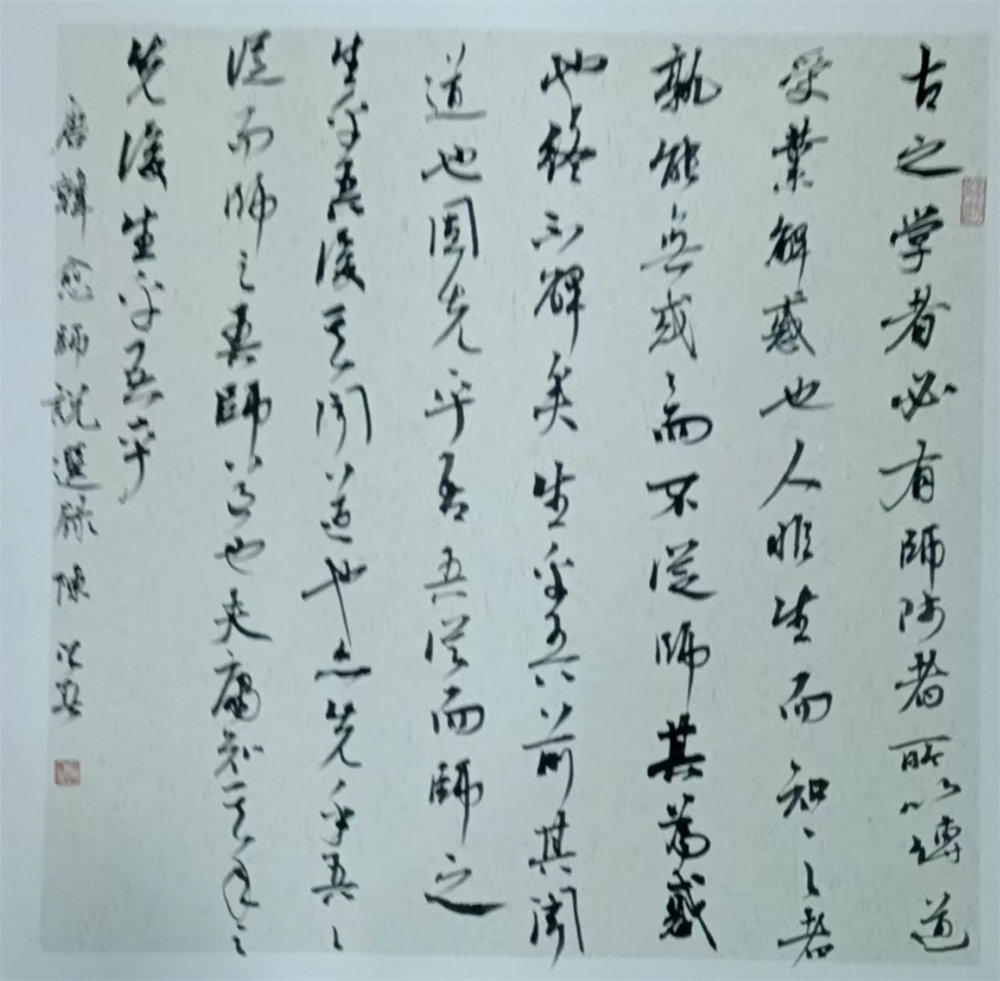 古之学者必有師師者所以傳道
受業解惑也人非生而知之者
孰能無惑〻而不從師其為惑
也終不解矣生乎吾前其聞
道也固先乎吾吾從而師之
生乎吾後其聞道也亦先乎吾〻
從而師之吾師道也夫庸知其年之
先後生乎吾乎
唐韓愈師說選録 陳